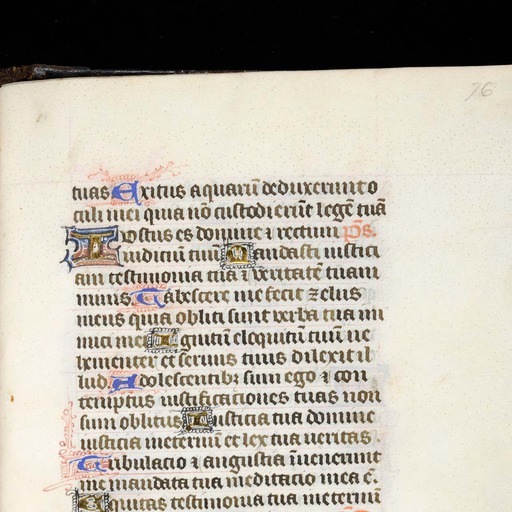 76
tuas Exitus aquarū deduxerunt o
culi mei quia nō custodierūt legē tuā
Iustus es domine ⁊ rectum ps.
iudiciū tuū Mandasti iustici
am testimonia tua ⁊ veritatē tuam
nimis Tabescere me fecit zelus
meus quia obliti sunt verba tua ini
mici mei Ignitū eloquiū tuū ve
hementer et seruus tuus dilexit il
lud Adolescentulꝰ sum ego ⁊ con
temptus iustificationes tuas non
sum oblitus Iusticia tua domine
iusticia ineternū et lex tua ueritas.
Tribulacio ⁊ angustia īuenerunt
me mandata tua meditacio mea ē.
Equitas testimonia tua ineternū